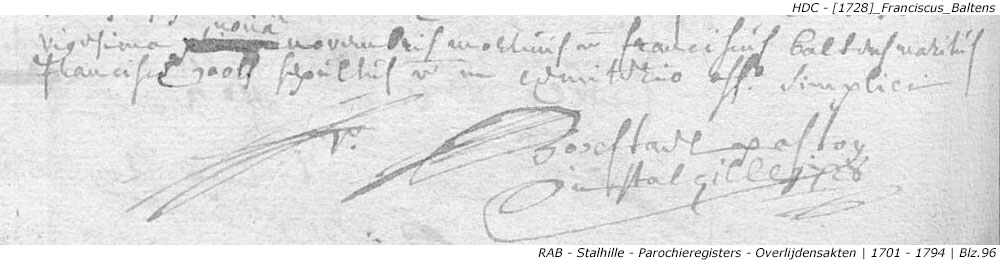 HDC - [1728]_Franciscus_Baltens
nona
vigesima novembris mortuus e franciscus baltens maritus
francisce sepultus e in cemiterio off. simplici
pastor
in stalgille 1728
RAB - Stalhille - Parochieregisters - Overlijdensakten | 1701 - 1794 | Blz.96